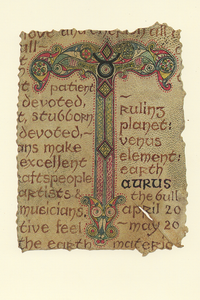 love and
all
patient
devoted,
t, stubborn
devoted,
ans make
excellent
aftspeople
artists &
musicians.
tive feel
the earth
T
~ ruling
planet:
venus
element:
earth
aurus
the bull
april 20
~ may 20
materic